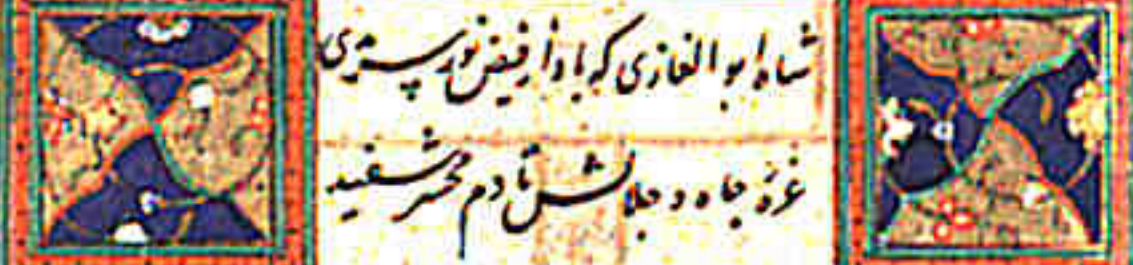 شاه ابو الغازی که بادا ز فیض نور سرمدی
غرهٔ جاه و جلالش تا دم محشر سفید